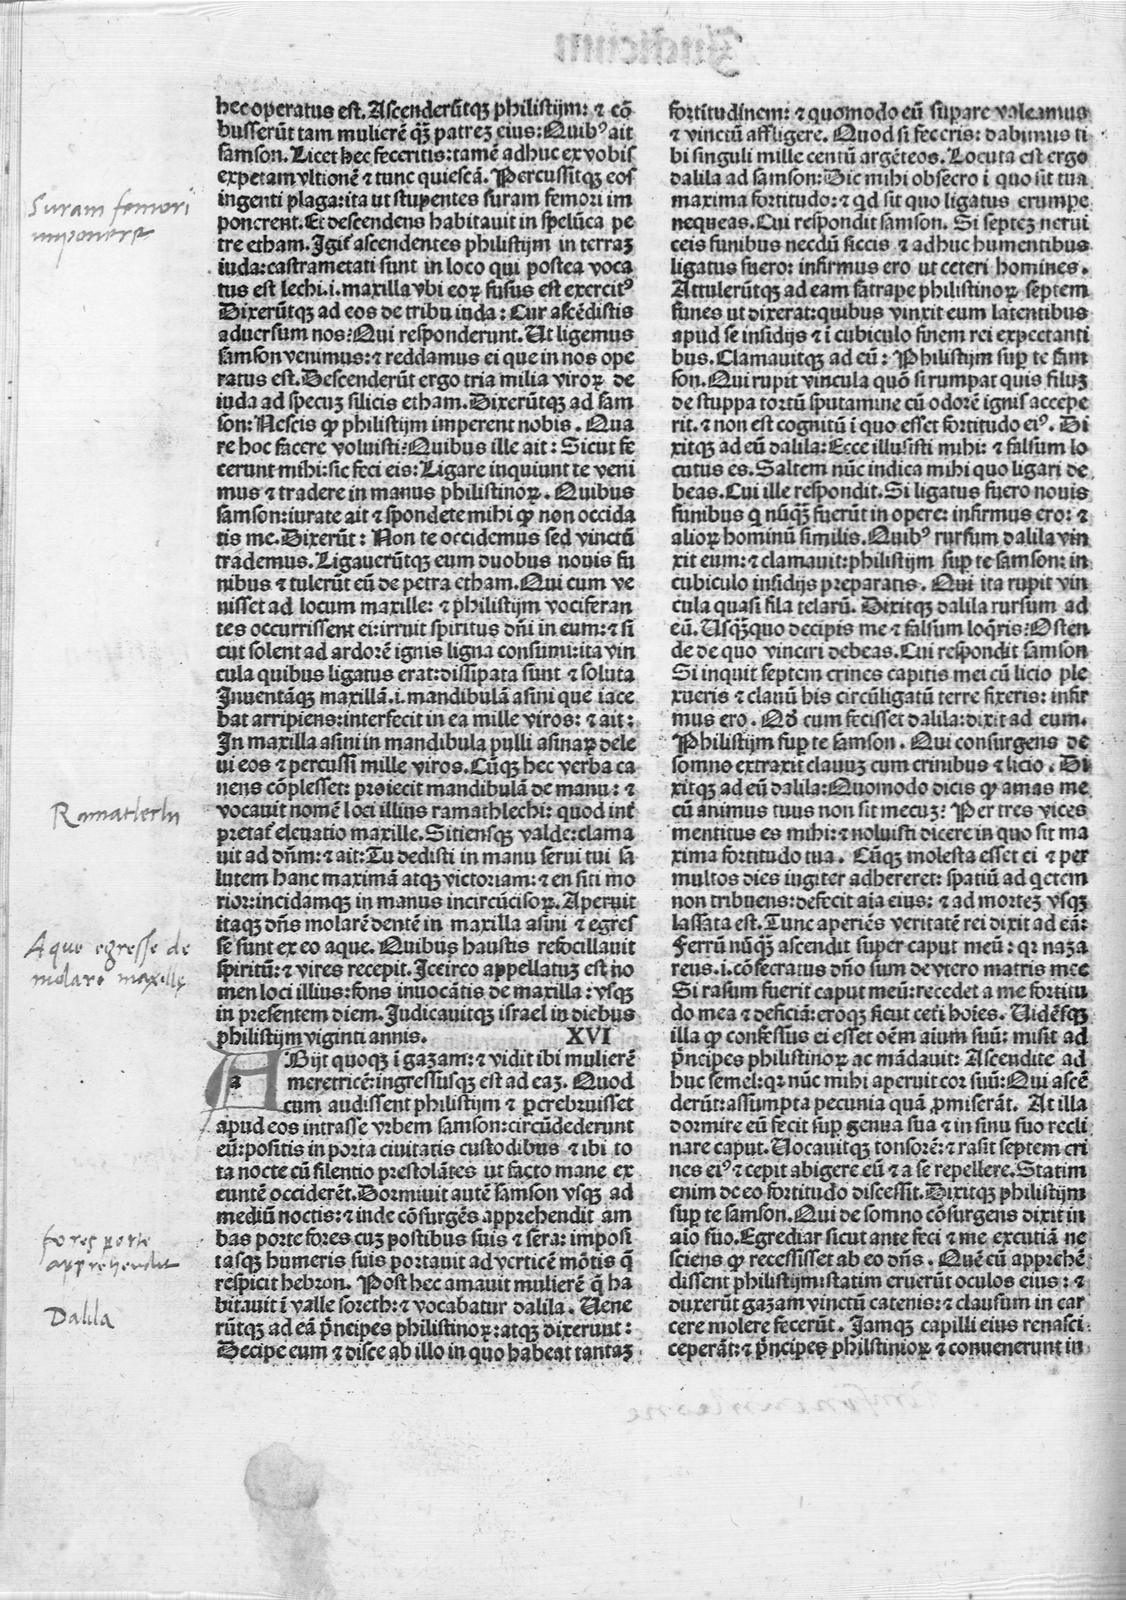 hec operatus est. Ascenderũtqꝫ philistijm: ⁊ cõ
busserũt tam mulierẽ qꝫ̃ patreꝫ eius: Quibꝰ ait
samson. Licet hec feceritis: tamẽ adhuc ex vobis
expetam vltionẽ ⁊ tunc quiescã. Percussitqꝫ eos
ingenti plaga: ita ut stupentes suram femori im
ponerent. Et descendens habitauit in spelũca pe
tre etham. Igiť ascendentes philistijm in terraꝫ
iuda: castrametati sunt in loco qui postea voca
tus est lechi .i. maxilla vbi eoꝝ fusus est exercitꝰ
Dixerũtqꝫ ad eos de tribu iuda: Cur ascẽdistis
aduersum nos: Qui responderunt. Ut ligemus
samson venimus: ⁊ reddamus ei que in nos ope
ratus est. Descenderũt ergo tria milia viroꝝ de
iuda ad specuꝫ silicis etham. Dixerũtqꝫ ad sam
son: Nescis ꝙ philistijm imperent nobis. Qua
re hoc facere voluisti: Quibus ille ait: Sicut fe
cerunt mihi: sic feci eis: Ligare inquiunt te veni
mus ⁊ tradere in manus philistinoꝝ. Quibus
samson: iurate ait ⁊ spondete mihi ꝙ non occida
tis me. Dixerũt: Non te occidemus sed vinctũ
trademus. Ligauerũtqꝫ eum duobus nouis fu
nibus ⁊ tulerũt eũ de petra etham. Qui cum ve
nisset ad locum maxille: ⁊ philistijm vociferan
tes occurrissent ei: irruit spiritus dñi in eum: ⁊ si
cut solent ad ardorẽ ignis ligna consumi: ita vin
cula quibus ligatus erat: dissipata sunt ⁊ soluta
Inuentãqꝫ maxillã .i. mandibulã asini que iace
bat arripiens: interfecit in ea mille viros: ⁊ ait:
In maxilla asini in mandibula pulli asinaꝝ dele
ui eos ⁊ percussi mille viros. Cũqꝫ hec verba ca
nens cõplesset: proiecit mandibulã de manu: ⁊
vocauit nomẽ loci illius ramathlechi: quod inť
pretať eleuatio maxille. Sitiensqꝫ valde: clama
uit ad dñm: ⁊ ait: Tu dedisti in manu serui tui sa
lutem hanc maximã atqꝫ victoriam: ⁊ en siti mo
rior: incidamqꝫ in manus incircũcisoꝝ. Aperuit
itaqꝫ dñs molarẽ dentẽ in maxilla asini ⁊ egres
se sunt ex eo aque. Quibus haustis refocillauit
spiritũ: ⁊ vires recepit. Icc̃irco appellatuꝫ est no
men loci illius: fons inuocãtis de maxilla: vsqꝫ
in presentem diem. Iudicauitqꝫ israel in diebus
philistijm viginti annis. XVI
ABijt quoqꝫ ĩ gazam: ⁊ vidit ibi mulierẽ
meretricẽ: ingressusqꝫ est ad eaꝫ. Quod
cum audissent philistijm ⁊ percrebruisset
apud eos intrasse vrbem samson: circũdederunt
eũ: positis in porta ciuitatis custodibus ⁊ ibi to
ta nocte cũ silentio prestolãtes ut facto mane ex
euntẽ occiderẽt. Dormiuit autẽ samson vsqꝫ ad
mediũ noctis: ⁊ inde cõsurgẽs apprehendit am
bas porte fores cuꝫ postibus suis ⁊ sera: imposi
tasqꝫ humeris suis portauit ad verticẽ mõtis q̃
respicit hebron. Post hec amauit mulierẽ q̃ ha
bitauit ĩ valle soreth: ⁊ vocabatur dalila. Uene
rũtqꝫ ad eã p̃ncipes philistinoꝝ: atqꝫ dixerunt:
Decipe eum ⁊ disce ab illo in quo habeat tantaꝫ
fortitudinem: ⁊ quomodo eũ suꝑare valeamus
⁊ vinctũ affligere. Quod si feceris: dabimus ti
bi singuli mille centũ argẽteos. Locuta est ergo
dalila ad samson: Dic mihi obsecro ĩ quo sit tua
maxima fortitudo: ⁊ qd sit quo ligatus erumpe
nequeas. Cui respondit samson. Si septeꝫ nerui
ceis funibus necdũ siccis ⁊ adhuc humentibus
ligatus fuero: infirmus ero ut ceteri homines.
Attulerũtqꝫ ad eam satrape philistinoꝝ septem
funes ut dixerat: quibus vinxit eum latentibus
apud se insidijs ⁊ ĩ cubiculo finem rei expectanti
bus. Clamauitqꝫ ad eũ: Philistijm suꝑ te sam
son. Qui rupit vincula quõ si rumpat quis filuꝫ
de stuppa tortũ sputamine cũ odorẽ ignis accepe
rit. ⁊ non est cognitũ ĩ quo esset fortitudo eiꝰ. Di
xitqꝫ ad eũ dalila: Ecce illusisti mihi: ⁊ falsum lo
cutus es. Saltem nũc indica mihi quo ligari de
beas. Cui ille respondit. Si ligatus fuero nouis
funibus q nũqꝫ̃ fuerũt in opere: infirmus ero: ⁊
alioꝝ hominũ similis. Quibꝰ rursum dalila vin
xit eum: ⁊ clamauit: philistijm suꝑ te samson: in
cubiculo insidijs preparatis. Qui ita rupit vin
cula quasi fila telarũ. Dixitqꝫ dalila rursum ad
eũ. Usqꝫ̃quo decipis me ⁊ falsum loq̃ris: Osten
de de quo vinciri debeas. Cui respondit samson
Si inquit septem crines capitis mei cũ licio ple
xueris ⁊ clauũ his circũligatũ terre fixeris: infir
mus ero. Qđ cum fecisset dalila: dixit ad eum.
Philistijm suꝑ te samson. Qui consurgens de
somno extraxit clauuꝫ cum crinibus ⁊ licio. Di
xitqꝫ ad eũ dalila: Quomodo dicis ꝙ amas me
cũ animus tuus non sit mecuꝫ: Per tres vices
mentitus es mihi: ⁊ noluisti dicere in quo sit ma
xima fortitudo tua. Cũqꝫ molesta esset ei ⁊ per
multos dies iugiter adhereret: spatiũ ad qetem
non tribuens: defecit aĩa eius: ⁊ ad morteꝫ vsqꝫ
lassata est. Tunc aperiẽs veritatẽ rei dixit ad eã:
Ferrũ nũqꝫ̃ ascendit super caput meũ: qꝛ naza
reus .i. cõsecratus dño sum de vtero matris mee
Si rasum fuerit caput meũ: recedet a me fortitu
do mea ⁊ deficiã: eroqꝫ sicut ceti hoĩes. Uidẽsqꝫ
illa ꝙ confessus ei esset oẽm aĩum suũ: misit ad
p̃ncipes philistinoꝝ ac mãdauit: Ascendite ad
huc semel: qꝛ nũc mihi aperuit cor suũ: Qui ascẽ
derũt: assumpta pecunia quã ꝓmiserãt. At illa
dormire eũ fecit suꝑ genua sua ⁊ in sinu suo recli
nare caput. Uocauitqꝫ tonsorẽ: ⁊ rasit septem cri
nes eiꝰ ⁊ cepit abigere eũ ⁊ a se repellere. Statim
enim de eo fortitudo discessit. Dixitqꝫ philistijm
suꝑ te samson. Qui de somno cõsurgens dixit in
aĩo suo. Egrediar sicut ante feci ⁊ me excutiã ne
sciens ꝙ recessisset ab eo dñs. Quẽ cũ apprehẽ
dissent philistijm: statim eruerũt oculos eius: ⁊
duxerũt gazam vinctũ catenis: ⁊ clausum in car
cere molere fecerũt. Jamqꝫ capilli eius renasci
ceperãt: ⁊ p̃ncipes philstinioꝝ ⁊ conuenerunt in
Suram femori
imponere
Ramathlechi
Aque egresse de
molare maxille
fores porte
apprehendit
Dalila